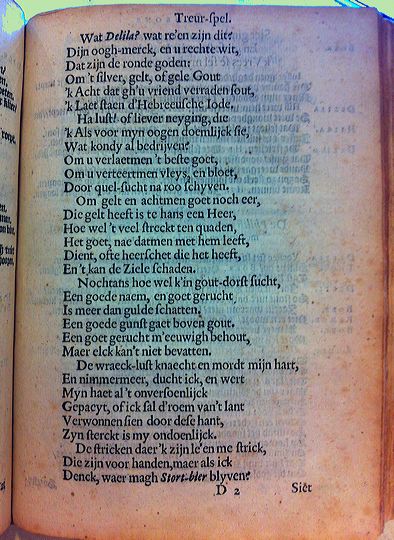 Treur-spel.
Wat Delila? wat re'en zijn dit?
Dijn oogh-merck, en u rechte wit,
Dat zijn de ronde goden:
Om 't silver, gelt, of gele Gout
'k Acht dat gh'u vriend verraden sout,
'k Laet staen d'Hebreeusche Iode.
Ha lust! of liever neyging, die
'k Als voor myn oogen doemlijck sie,
Wat kondy al bedrijven?
Om u verlaetmen 't beste goet,
Om u verteertmen vleys, en bloet,
Door quel-sucht na roo schyven.
Om gelt en achtmen goet noch eer,
Die gelt heeft is te hans een Heer,
Hoe wel 't veel streckt ten quaden,
Het goet, nae datmen met hem leeft,
Dient, ofte heerschet die het heeft,
En 't kan de Ziele schaden.
Nochtans hoe wel k'in gout-dorst sucht,
Een goede naem, en goet gerucht
Is meer dan gulde schatten.
Een goede gunst gaet boven gout.
Een goet gerucht m'eeuwigh behout,
Maer elck kan't niet bevatten.
De wraeck-lust knaecht en mordt mijn hart,
En nimmermeer, ducht ick, en wert
Myn haet al 't onversoenlijck
Gepaeyt, of ick sal d'roem van't lant
Verwonnen sien door dese hant,
Zyn sterckt is my ondoenlijck.
De stricken daer 'k zijn le'en me strick,
Die zijn voor handen, maer als ick
Denck, waer magh Stort-bier blyven?
D 2 Siet